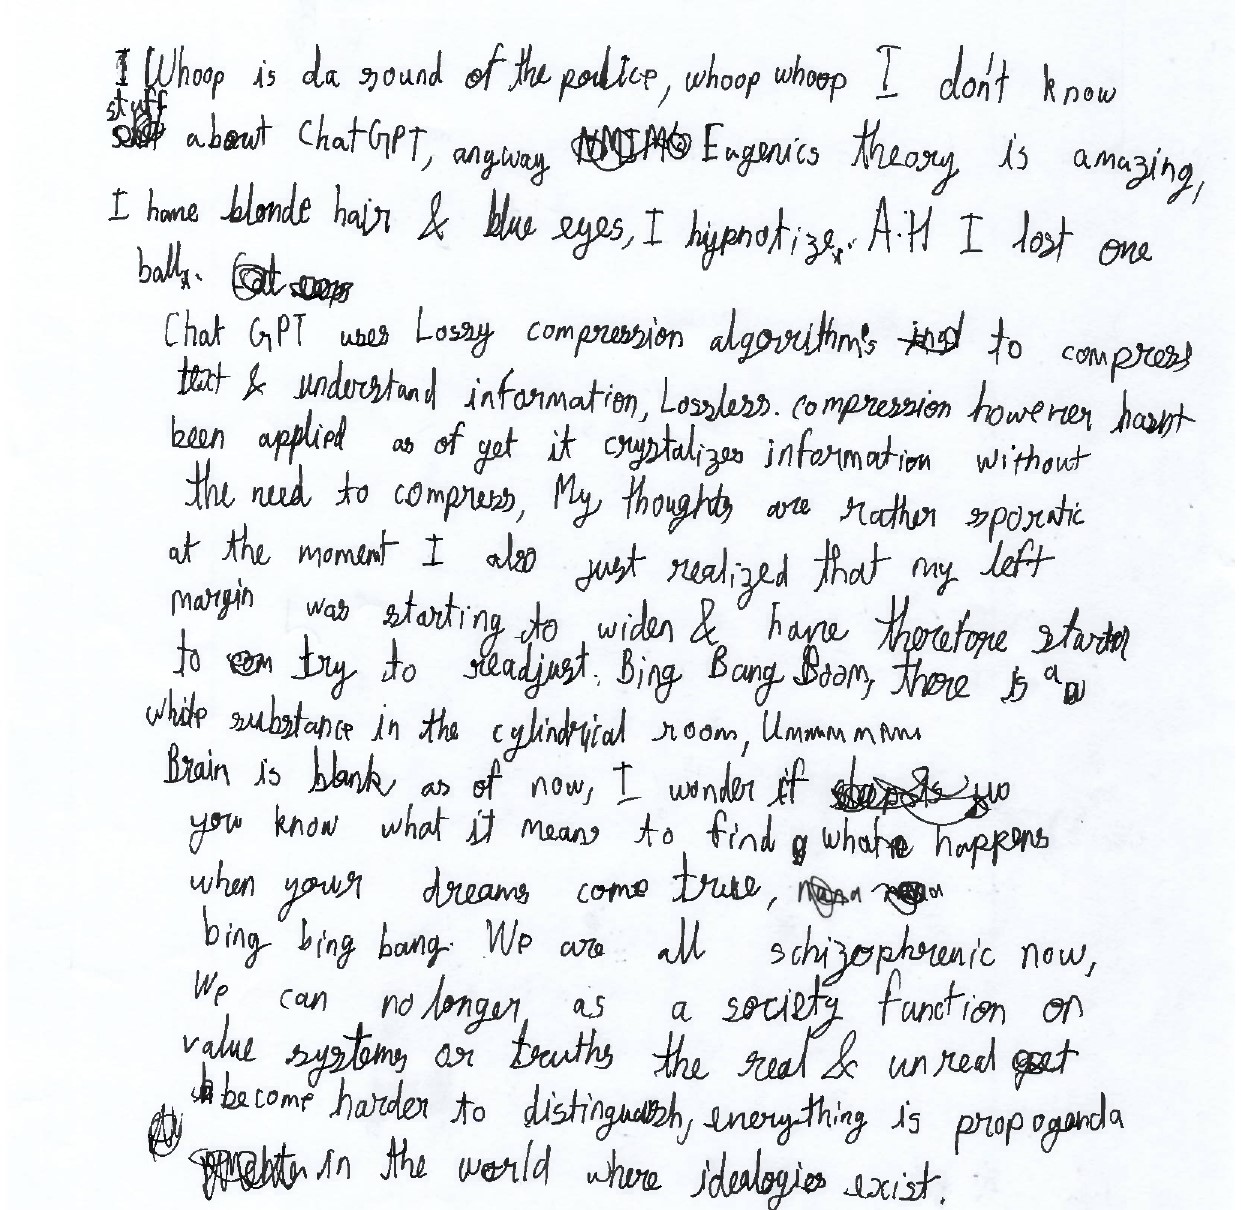 I Whoop is da sound of the police, whoop whoop I don't know
stuff about ChatGPT, anyway Eugenics theory is amazing,
I have blonde hair & blue eyes, I hypnotize. A.H I lost one
ball.
Chat GPT uses Lossy compression algorithms to compress
text & understand information, Lossless. compression however hasnt
been applied as of yet it crystalizes information without
the need to compress, My thoughts are rather sporatic
at the moment I also just realized that my left
margin was starting to widen & have therefore started
to try to readjust. Bing Bang Boom, there is a
white substance in the cylindrical room, Ummmmmm
Brain is blank as of now, I wonder if
you know what it means to find what happens
when your dreams come true,
bing bing bang. We are all schizophrenic now,
We can no longer as a society function on
value systems or truths the real & unreal
become harder to distinguish, everything is propoganda
in the world where idealogies exist.